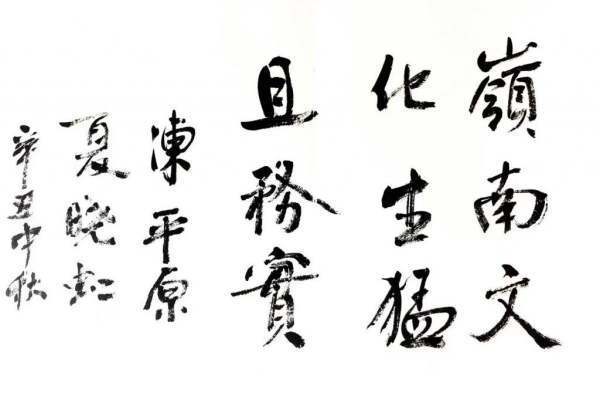 嶺南文
化生猛
且務實
陳平原
夏晓虹
辛丑中秋